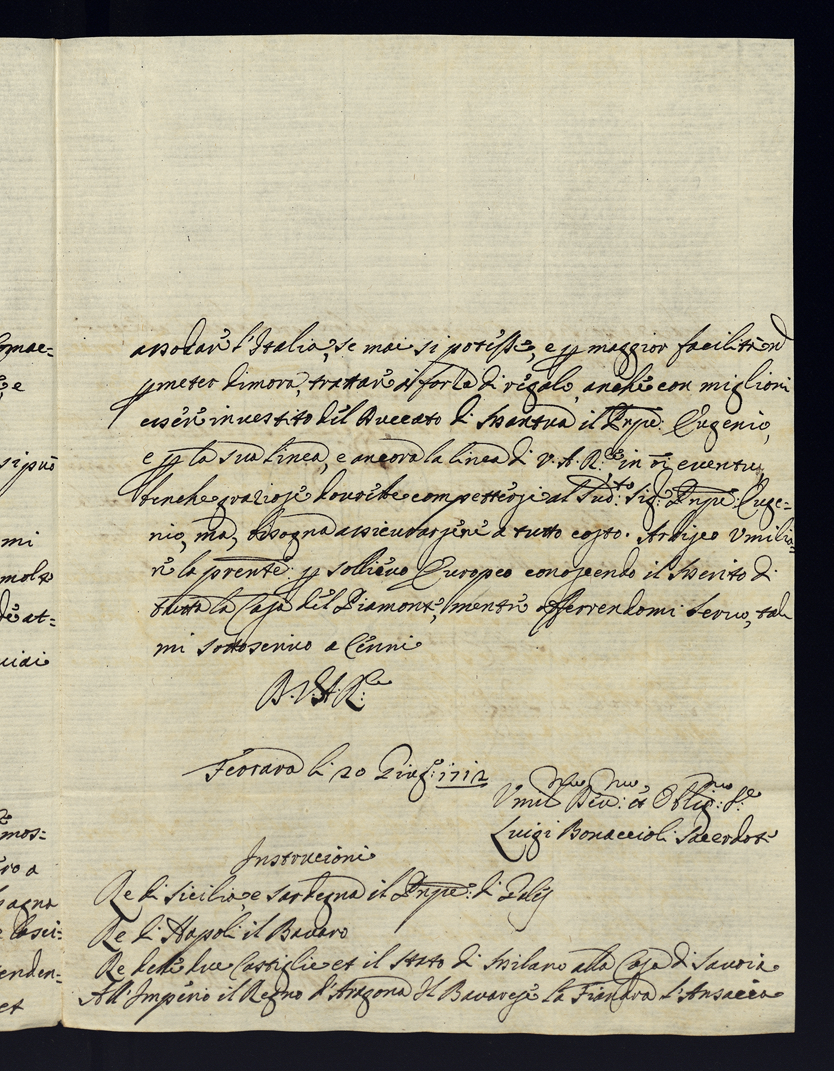 omae=
e
si può
mi
molto
de at=
mos=
ro a
pagna
e lasci=
tenden=
et
assodare l'Italia, se mai si potesse, e p maggior facilità
p meter dimora, trattare à forte di regalo, anche con migliori
esser investito del Duccato di Mantua il Prnpe: Eugenio,
e p la sua linea, e ancora la linea di V.A.R.le in oi eventu,
benche graziose dourebe compettersi al Sud.to Sig.r Prnpe: Euge=
nio, ma, bisogna assicurarsene a tutto costo. Ardisco Vmilia=
re la prente: p sollievo Europeo conoscendo il Merito di
tutta la Casa del Piamonte, mentre offferrendomi Servo, tale
mi sottoscrivo a Cenni
D.V.A.R.le
Ferrara li 20 Giug: 1712
Vmil.mo Dev.mo: et Oblig.mo: S.e
Luigi Bonaccioli Sacerdote
Instrucioni
Re di Sicilia, e Sardegna il Prnpe: di Galles
Re di Napoli il Bavaro
Re dele due Castiglie et il Stato di Milano alla Casa di Savoia
All'Imperio il Regno d'Aragona Il Bavarese la Fiandra l'Ansacia